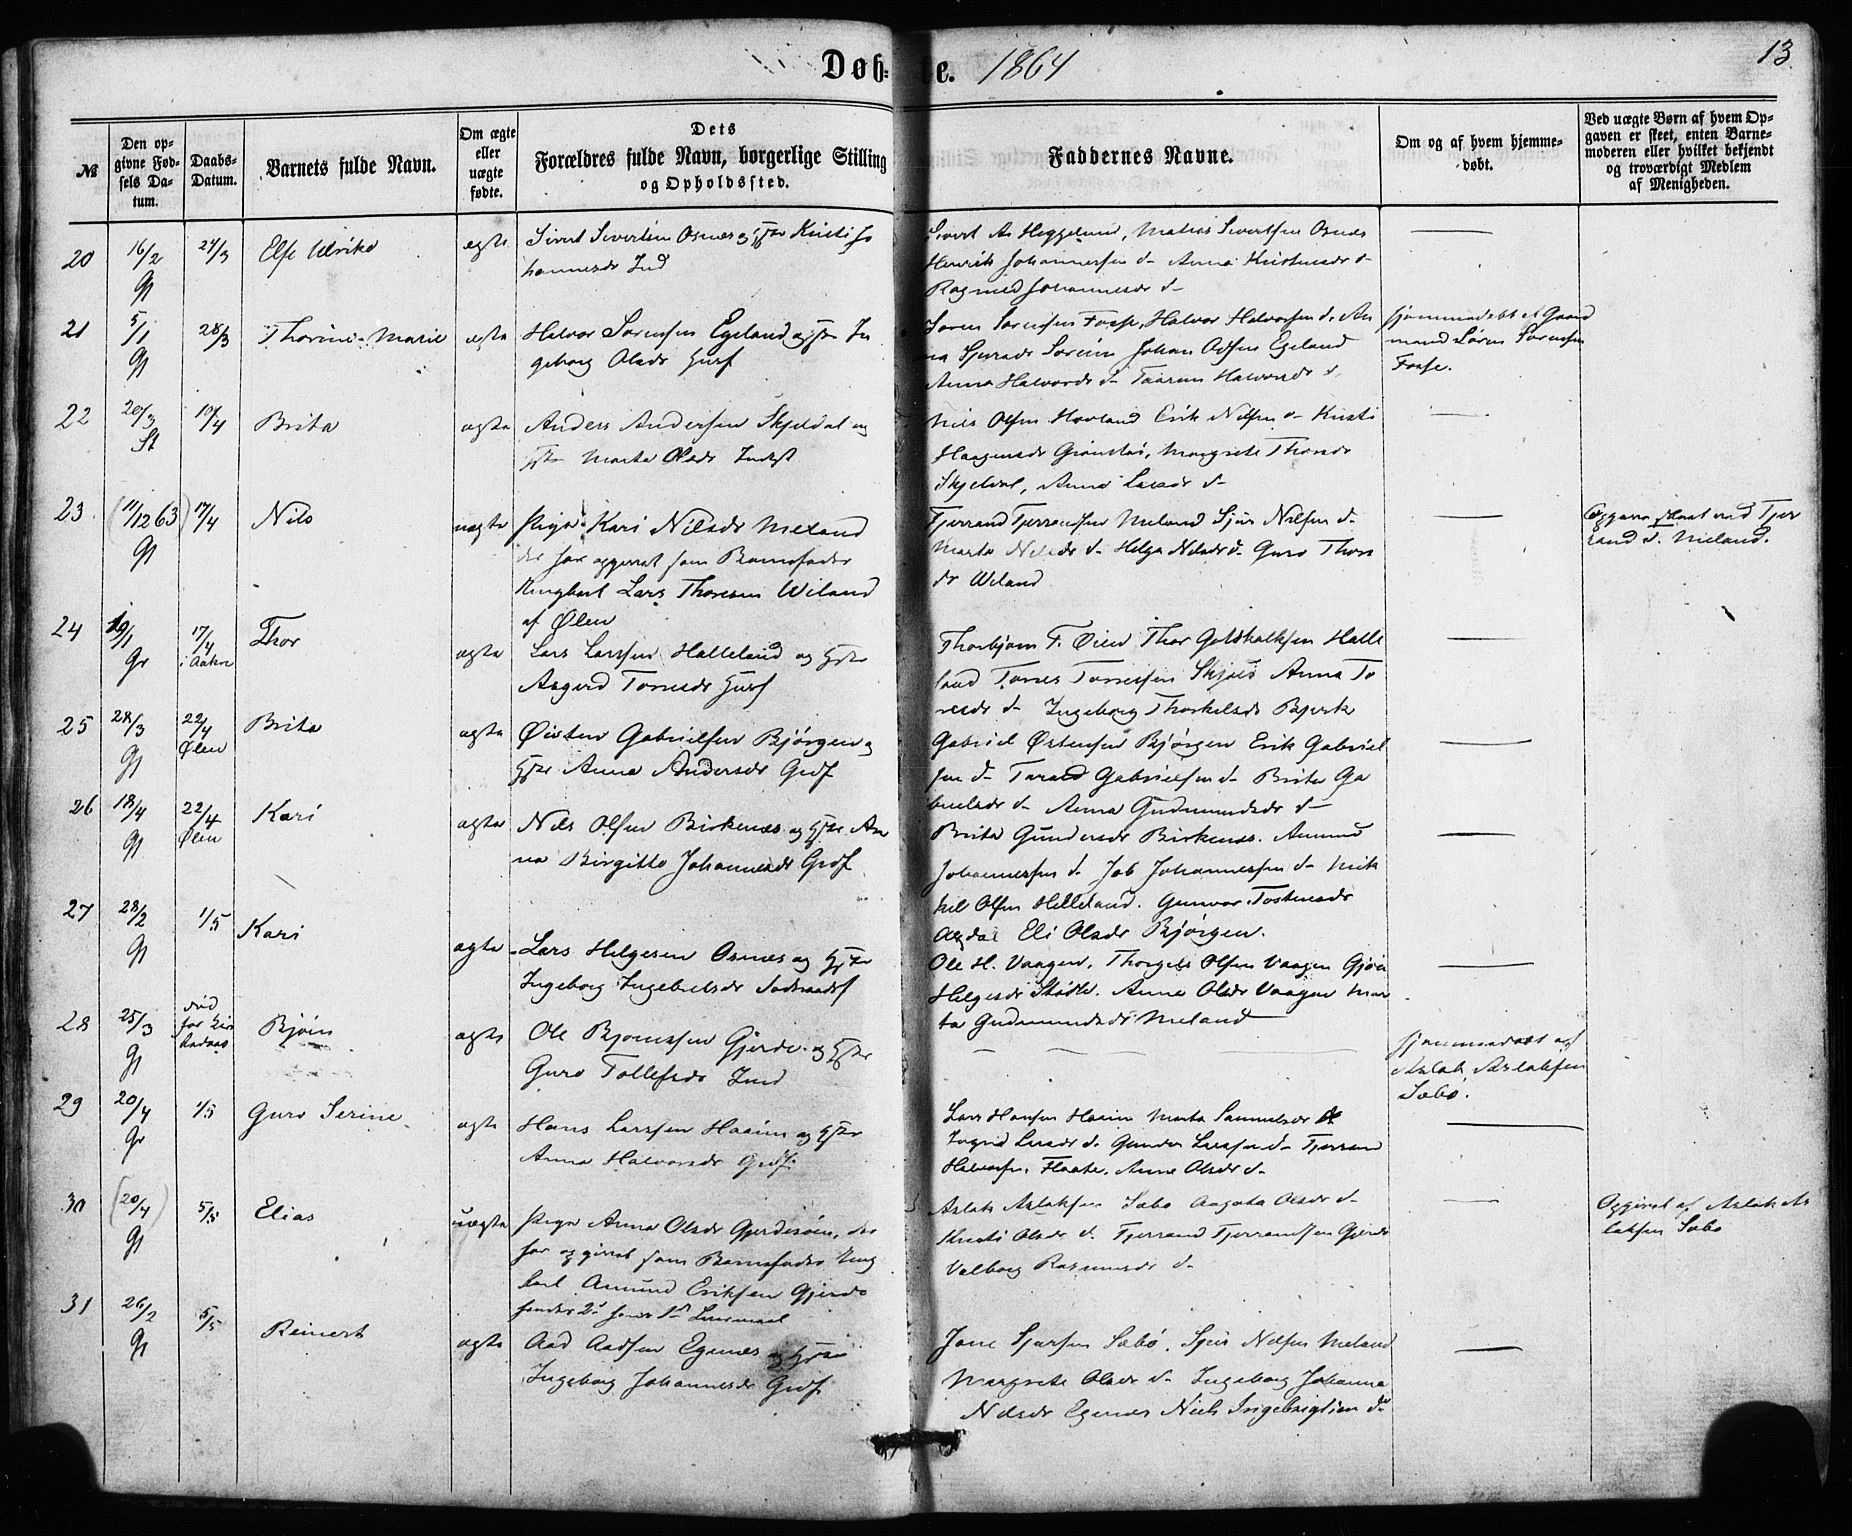 Døb- te. 1864
13.
№
Den opgivne Fødsels Datum.
Daabs-Datum.
Barnets fulde Navn.
Om ægte eller uægte fødte.
Dets Forældres fulde Navn, borgerlige Stilling og Opholdssted.
Faddernes Navne.
Om og af hvem hjemmedøbt.
Ved uægte Børn af hvem Opgaven er skeet, enten Barnemoderen eller hvilket bekjendt og troværdigt Medlem af Menigheden.
20 16/2 Gj 24/3 Else Ulrike ægte Sivert Sivertsen Osnes og Hstr Kristi Jo
hannesdr Ind
Sivert As Heggelund, Matias Sivertsen Osnes
Henrik Johannessen d- Anna Kristensdr d-
Ragnild Johannesdr d-
21 5/1 Gj 28/3 Thorine Marie ægte Halvor Sørensen Egeland og Hstr In
geborg Olsdr Husf
Søren Sørensen Fosse, Halvor Halvorsen d. An
na Sjursdr Søreim Johan Odsen Egeland
Anna Halvorsdr d- Taaran Halvorsdr d.
hjemmedøbt af Gaard
mand Søren Sørensen
Fosse.
22 20/3 St 10/4 Brita ægte Anders Andersen Skjeldal og
Hstr Marta Olsdr Inderst
Nils Olsen Hovland Erik Nilsen d- Kristi
Haagensdr Grønstøl, Margrete Thorsdr
Skjeldal, Anna Larsdr d-
23. (11/12 63) Gj 17/4 Nils uægte Pige Kari Nilsdr Meland
der har opgivet som Barnefader
Ungkarl Lars Thoresen Wiland
af Ølen
Tjerrand Tjerrandsen Meland Sjur Nilsen d-
Marta Nilsdr d- Helga Nilsdr d- Guro Thors
dr Wiland
Opgave skeet ved Tjer
rand d. Meland.
24 19/1 Gr 17/4 i Aaken Thor ægte Lars Larssen Halleland og Hstr
Aagerd Torresdr Husf
Thorbjørn T. Øien Thor Gotskalksen Halle
land Torres Torressen Skjold Anna To
resdr d- Ingeborg Thorkelsdr Bjerk
25 28/3 Gj 22/4 Ølen Brita ægte Øisten Gabrielsen Bjørgen og
Hstr Anna Andersdr Grdf
Gabriel Østensen Bjørgen Erik Gabriel
sen d- Tarald Gabrielsen d- Brita Ga
brielsdr d- Anna Gudmundsdr d-
26 18/4 Gj 22/4 Ølen Kari ægte Nils Olsen Birkenes og Hstr An
na Birgitte Johannesdr Grdf
Brita Gundersdr Birkenes. Amund
Johannessen d- Job Johannessen d- Mik
kel Olsen Helleland. Gunvor Tostensdr
Eli Olsdr Bjørgen.
27 28/2 Gj 1/5 Kari ægte Lars Helgesen Osnes og Hstr
Ingeborg Ingebretsdr
Ole H. Vaagen, Thorgels Olsen Vaagen
Helgesdr Stødle. Anna Olsdr Vaagen Mar
ta Gudmundsdr Meland
28 25/3 Gj død før Bjørn ægte Ole Bjørnssen Gjerde og Hstr
Guro Tollefsdr Ind
hjemmedøbt af
Aslak Aslaksen
Sæbø.
29 20/4 Gr 1/5 Guro Serine ægte Hans Larssen Haaim og Hstr
Anna Halvorsdr Grdf.
Lars Hansen Haaim Marta Samuelsdr d-
Ingrid Larsdr d. Gunder Larssen d- Tjerran
Halvorsen. Flaate. Anne Olsdr d-
30 (20/4) Gj 5/5 Elias uægte Pige Anna Olsdr Gjerdesøien, der
har opgivet som Barnefader Ung
karl Amund Eriksen Gjerde
hendes 2d hans 1st Leiermaal
Aslak Aslaksen Sæbø Aagota Olsdr d-
Kristi Olsdr d. Tjerrand Tjerrandsen Gjerde
Valborg Rasmusdr d-
Opgivet af Aslak As
laksen Sæbø
31 26/2 Gj 5/5 Reinert ægte Aad Aadsen Egenes og Hstr
Ingeborg Johannesdr Grdf
Jone Sjursen Sæbø. Sjur Nilsen Meland
Margrete Olsdr d- Ingeborg Johanna
Nilsdr Egenes Niels Ingebrigtsen d-